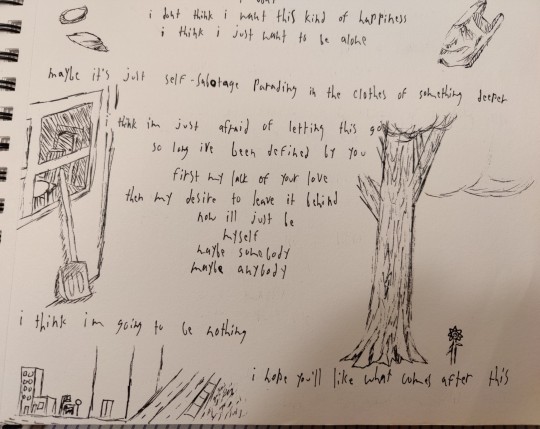 i dont think i want this kind of happiness
i think i just want to be alone
maybe it's just self-sabotage parading in the clothes of something deeper
i think im just afraid of letting this go
so long ive been defined by you
first my lack of your love
then my desire to leave it behind
now ill just be
myself
maybe somebody
maybe anybody
i think im going to be nothing
i hope you'll like what comes after this